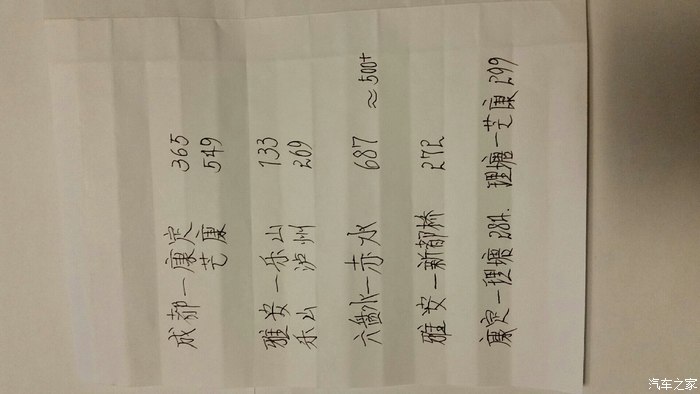 成都一康定 365
芒康 549
雅安一乐山 133
乐山 泸州 269
六盘水一赤水 687 ≈500+
雅安一新都桥 272
康定一理塘 284. 理塘一芒康 299
汽车之家